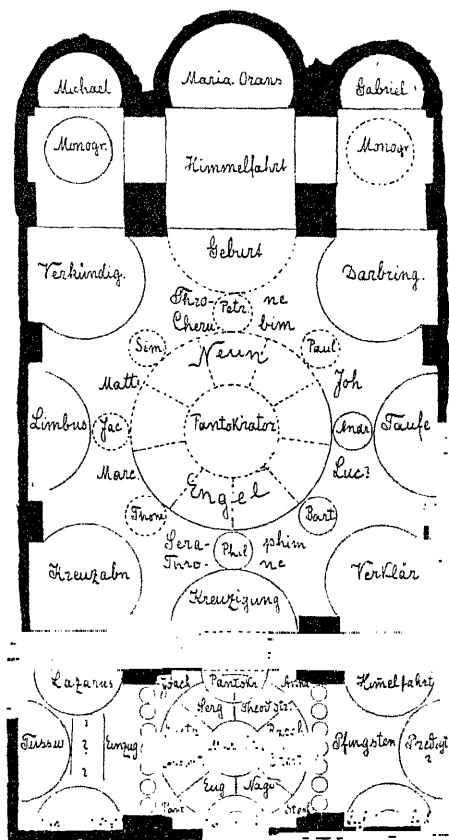 Michael Maria Orans Gabriel
Monogr. Monogr
Himmelfahrt
Geburt
Verkündig. Darbring.
Thro- Petr ne
Cheru bim
Sim Neun Paul
Matt. Joh
Limbus Jac Pantokrator Andr Taufe
Marc. Luc?
Engel
Thom Bart
Sera- Phil phim
Thro- ne
Kreuzabn Verklär
Kreuzigung
Lazarus Pantokr Himelfahrt
Serg Theod
Fussw ? Einzug Pfingsten Predigt
? ?
?
Eug